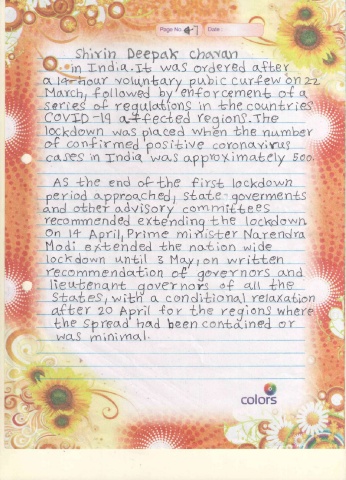 Page No. 4
Date:
Shirin Deepak Chavan
in India. It was ordered after
a 14-hour voluntary pubic curfew on 22
March, followed by enforcement of a
series of regulations in the countries
COVID-19 affected regions. The
lockdown was placed when the number
of confirmed positive coronavirus
cases in India was approximately 500.
As the end of the first lockdown
period approached, state-goverments
and other advisory committees
recommended extending the lockdown
on 14 April, Prime minister Narendra
Modi extended the nation wide
lockdown until 3 May, on written
recommendation of governors and
lieutenant governors of all the
States, with a conditional relaxation
after 20 April for the regions where
the spread had been contained or
was minimal.
colors